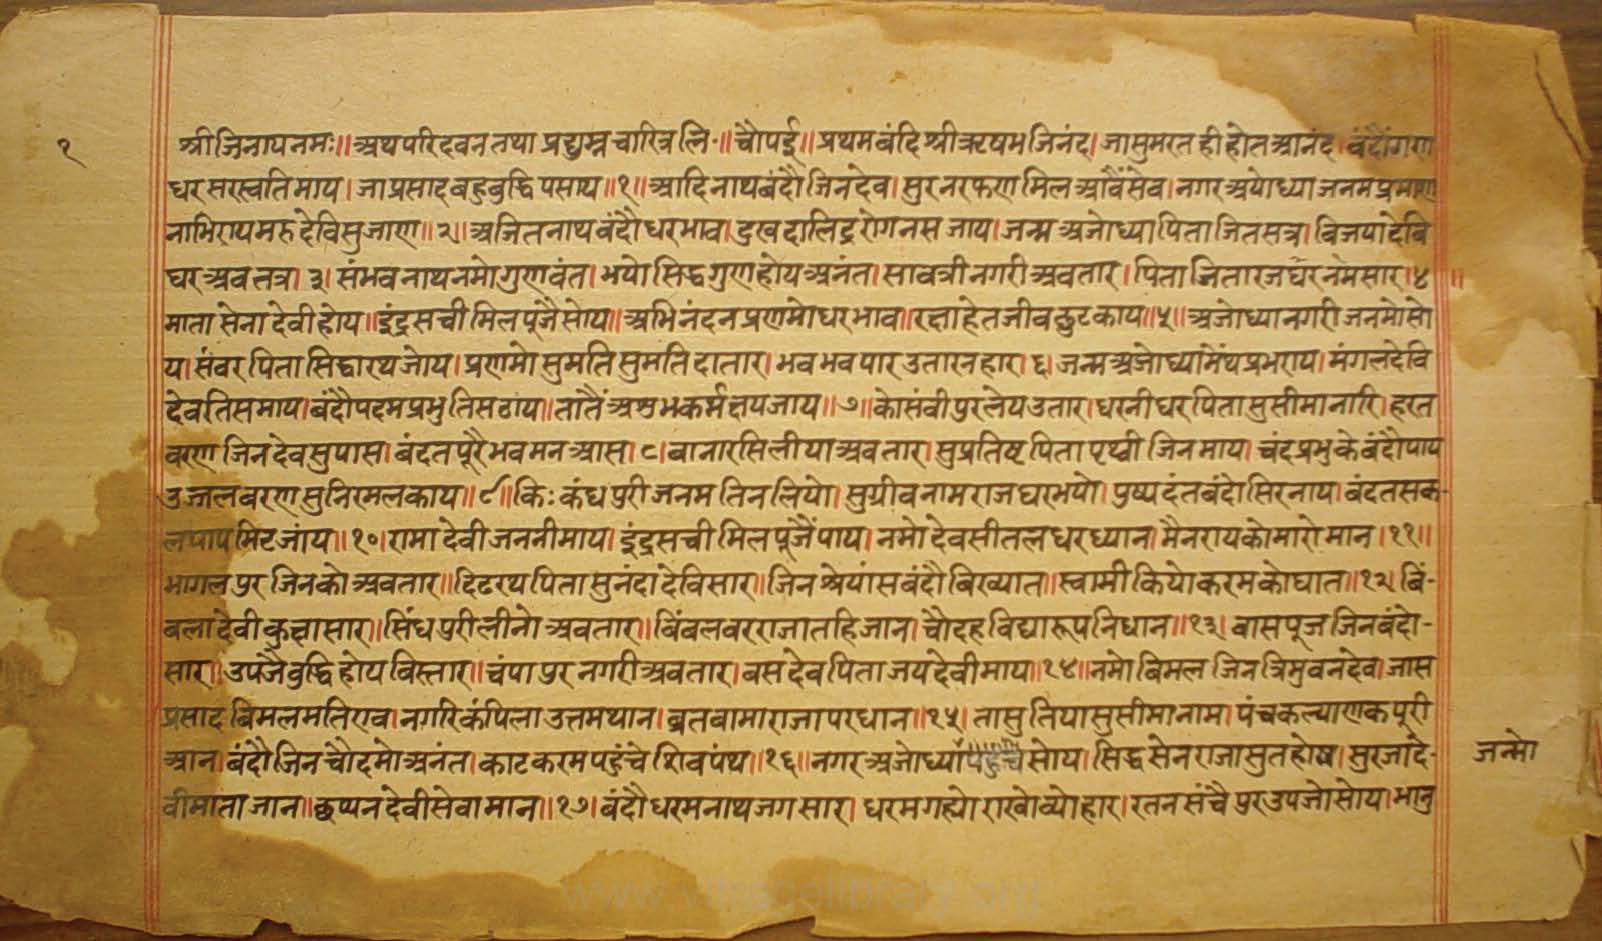 १
श्रीजिनायनमः॥ अथ परिदवन तथा प्रद्युम्न चारित्र लि·॥ चौपई॥ प्रथम बंदि श्रीऋषभ जिनंद। जा सुमरत ही होत आनंद। बंदौंगण
धर सरस्वति माय। जा प्रसाद बहु बुद्धि पसाय॥१॥ आदिनाथ बंदौ जिनदेव। सुर नर फण मिल आवैं सेव। नगर अयोध्या जनम प्रमाण
नाभिराय मरुदेवि सुजाण॥२॥ अजितनाथ बंदौ धर भाव। दुख दालिद्र रोग नस जाय। जन्म अजोध्या पिता जितसत्र। बिजया देवि
घर अवतत्र। ३। संभवनाथ नमो गुणवंत। भयो सिद्ध गुण होय अनंत। सावत्री नगरी अवतार। पिता जितारज घर नमसार।४॥
माता सेना देवी होय॥ इंद्र सची मिल पूजै सोय॥ अभिनंदन प्रणमो धर भाव। रक्षा हेत जीव छुटकाय॥५॥ अजोध्या नगरी जनमो सो
य। संवर पिता सिद्धारथ जोय। प्रणमो सुमति सुमति दातार। भव भव पार उतारनहार। ६। जन्म अजोध्या मेंघप्रभराय। मंगलदेवि
देवतिसमाय। बंदौ पदमप्रभु तिस ठाय। तातैं अशुभ कर्म क्षय जाय॥७॥ कोसंवी पुर लेय उतार। धरनीधर पिता सुसीमा नारि। हरत
वरण जिनदेव सुपास। बंदत पूरै भव मन आस। ८। बानारसि लीया अवतार। सुप्रतिष्ट पिता पृथ्वी जिन माय। चंदप्रभु के बंदौ पाय
उज्जल वरण सु निरमल काय॥९॥ किःकंध पुरी जनम तिन लियो। सुग्रीव नाम राज घर भयो। पुष्पदंत बंदो सिरनाय। बंदत सक-
ल पाप मिट जांय॥१०। रामा देवी जननी माय। इंद्र सची मिल पूजैं पाय। नमो देव सीतल धर ध्यान। मैनराय को मारो मान।११॥
भागलपुर जिन को अवतार॥ दिढरथ पिता सुनंदा देवि सार॥ जिन श्रेयांस बंदौ बिख्यात॥ स्वामी कियो करम को घात॥१२। बिं-
बला देवी कुक्षा सार॥ सिंघपुरी लीनो अवतार॥ बिंबलवर राजा तहि जान। चौदह विद्या रूप निधान॥१३। बासपूज जिन बंदो-
सार॥ उपजै बुद्धि होय बिस्तार॥ चंपापुर नगरी अवतार। बसदेव पिता जयदेवी माय॥१४॥ नमो बिमल जिन त्रिभुवनदेव। जास
प्रसाद बिमल मति एव। नगरि कंपिला उत्तम थान। ब्रतबामा राजा परधान॥१५। तासु तिया सुसीमा नाम। पंचकल्याणक पूरी
आन। बंदौ जिन चौदमो अनंत। काट करम पहुंचे शिव पंथ॥१६॥ नगर अजोध्या सोय। सिद्धसेन राजा सुत होय। सुरजादे-
जन्मो
वी माता जान॥ छप्पन देवी सेवा मान॥१७। बंदौ धरमनाथ जग सार। धरम गह्यो राखो व्योहार। रतन संचै पुर उपजो सोय। भानु
www.vitragelibrary.org